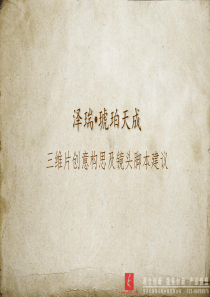 泽瑞•琥珀天成
三维片创意构思及镜头脚本建议